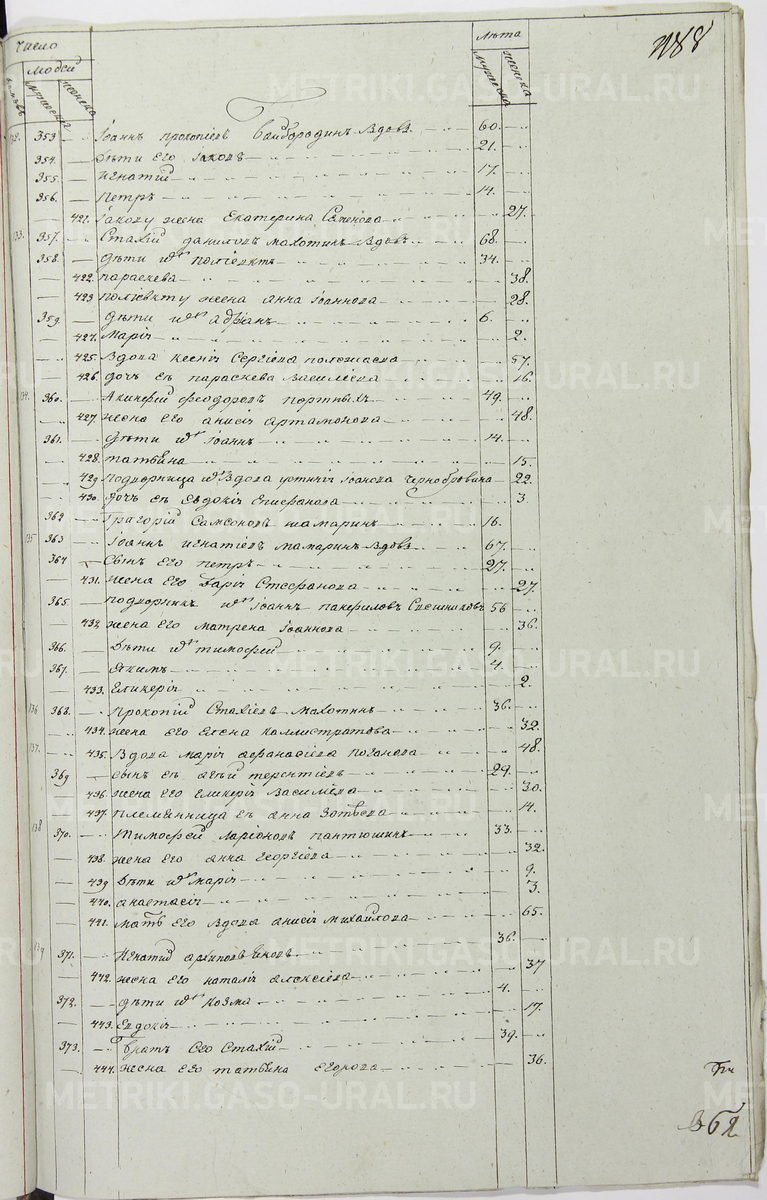 Число
Людей
Лѣта
мужеска
женска
мужеска
женска
132. 353 Іоаннъ Прокопіевъ Байбородинъ вдовъ 60.
354. Дѣти его Іаковъ 21.
355. Игнатій 17.
356. Петръ 14.
421. Іакову жена Екатерина Семенова 27.
133. 357. Стахій Даниловъ Махотинъ вдовъ 68.
358. Дѣти ихъ Поліевктъ 34.
422. Параскева 38.
423 Поліевкту жена Анна Іоаннова 28.
359 Дѣти ихъ Адріанъ 6.
424. Маріи 2.
425. Вдова Ксеніи Сергіева 57.
426. Дочь ея Параскева Василіева 16.
134. 360. Акинфій Феодоровъ Портныхъ 49.
427. Жена его Анисіи Артамонова 48.
361. Дѣти ихъ Іоаннъ 14.
428. Татьяна 15.
429 Подворница ихъ вдова Устиніи Іоанова Чернобровина 22.
430. Дочь ея Евдокіи Епифанова 3.
362 Григорій Самсоновъ Шамаринъ 16.
135 363 Іоаннъ Игнатіевъ Мамаринъ вдовъ 67.
364 Сынъ его Петръ 27.
431. Жена его Даріи Стефанова 27.
365. Подворникъ ихъ Іоаннъ Панфиловъ 56
432. Жена его Матрена Іоаннова 36.
366. Дѣти ихъ Тимофей 9.
367. Якимъ 4.
433. Гликеріи 2.
136 368. Прокопій Стахіевъ Махотинъ 36.
434. Жена его Елена Каллистратова 32.
137. 435. Вдова Маріи Афанасіева Поганова 48.
369 Сынъ ея Агѣй Терентіевъ 29.
436. Жена его Гликеріи Василіева 30.
437. Племянница ея Анна Зотѣева 14.
138 370. Тимофей Ларіоновъ Пантюшинъ 33.
438. Жена его Анна Георгіева 32.
439 Дѣти ихъ Маріи 9.
440. Анастасіи 3.
441. Мать его вдова Анисіи Михайлова 65.
139 371. Игнатій Архиповъ 36.
442. Жена его Наталіи Алексіева 37
372. Дѣти ихъ Козма 4.
443. Евдокіи 17.
373. Братъ его Стахій 39.
444. Жена его Татьяна Егорова 36.
METRIKI.GASO-URAL.RU